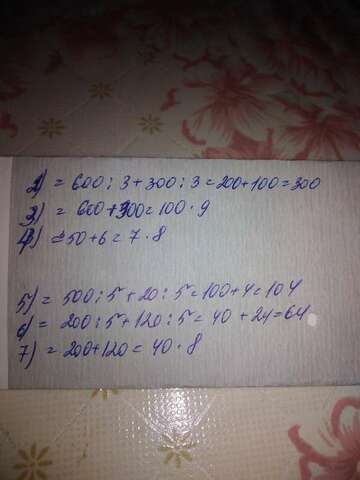 2) = 600 : 3 + 300 : 3 = 200 + 100 = 300
3) = 600 + 300 = 100 · 9
4) = 50 + 6 = 7 · 8
5) = 500 : 5 + 20 : 5 = 100 + 4 = 104
6) = 200 : 5 + 120 : 5 = 40 + 24 = 64
7) = 200 + 120 = 40 · 8